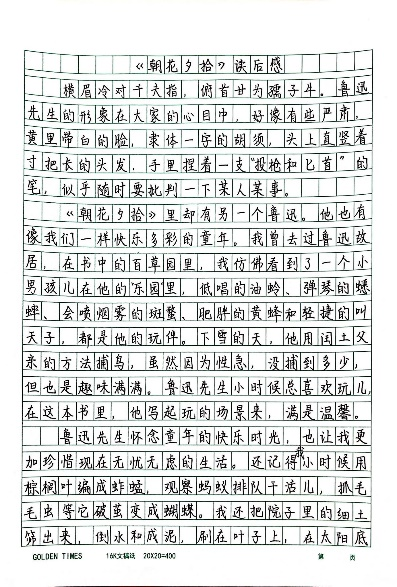 《朝花夕拾》读后感
横眉冷对千夫指，俯首甘为孺子牛。鲁迅
先生的形象在大家的心目中，好像有些严肃，
黄里带白的脸，隶体一字的胡须，头上直竖着
寸把长的头发，手里捏着一支“投枪和匕首”的
笔，似乎随时要批判一下某人某事。
《朝花夕拾》里却有另一个鲁迅。他也有
像我们一样快乐多彩的童年。我曾去过鲁迅故
居，在书中的百草园里，我仿佛看到了一个小
男孩儿在他的“乐园”里，低唱的油蛉、弹琴的蟋
蟀、会喷烟雾的斑蝥、肥胖的黄蜂和轻捷的叫
天子，都是他的玩伴。下雪的天，他用闰土父
亲的方法捕鸟，虽然因为性急，没捕到多少，
但也是趣味满满。鲁迅先生小时候总喜欢玩儿，
在这本书里，他写起玩的场景来，满是温馨。
鲁迅先生怀念童年的快乐时光，也让我更
加珍惜现在无忧无虑的生活。还记得我小时候用
棕榈叶编成蚱蜢，观察蚂蚁排队干活儿，抓毛
毛虫等它破茧变成蝴蝶。我还把院子里的细土
筛出来，倒水和成泥，刷在叶子上，在太阳底
GOLDEN TIMES 16K文稿纸 20X20=400 第 页